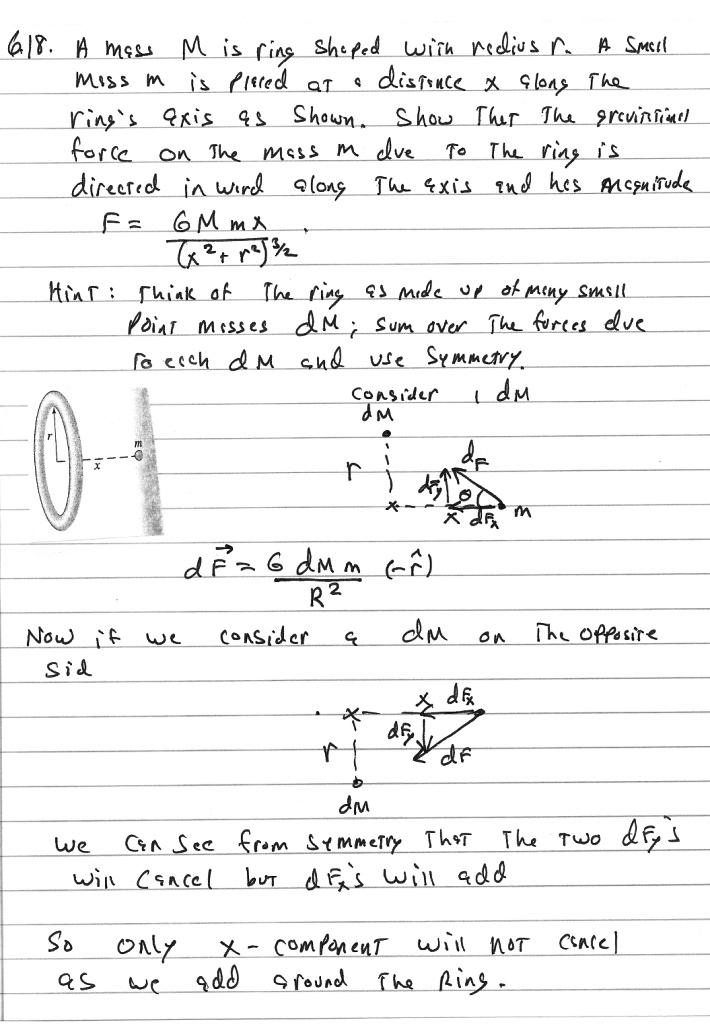 6.18. A mass M is ring shaped with radius r. A small
mass m is placed at a distance x along the
ring's axis as shown. Show that the gravitational
force on the mass m due to the ring is
directed inward along the axis and has magnitude
F = GMmx / (x² + r²)^3/2 .
Hint : Think of the ring as made up of many small
point masses dM ; sum over the forces due
to each dM and use symmetry.
Consider 1 dM
dM
r
m
x
r
dF
dFy
θ
x
dFx
m
dF⃗ = G dM m / R² (-r̂)
Now if we consider a dM on the opposite
sid
x
dFx
dFy
r
dF
dM
we can see from symmetry that the two dFy's
will cancel but dFx's will add
So only x-component will not cancel
as we add around the Ring.